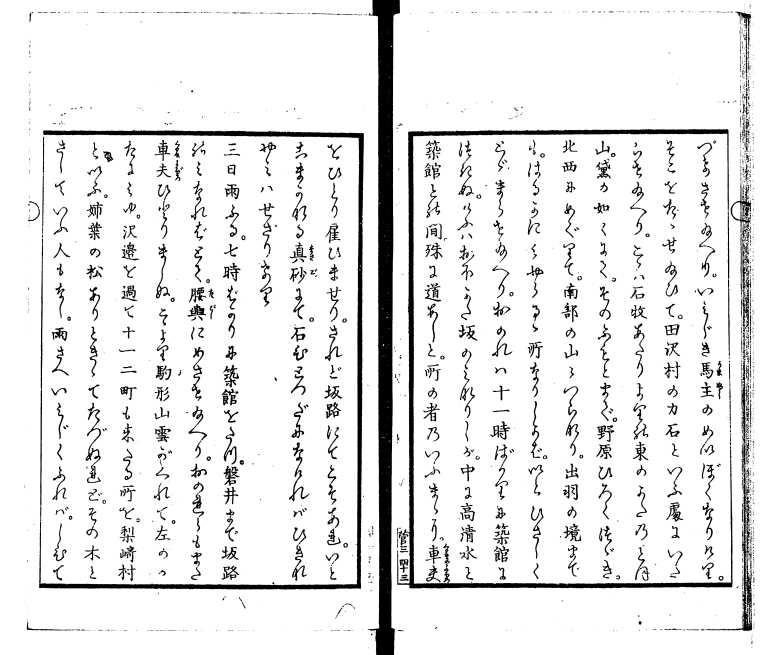 づきさせ給へり。いみじき馬主のめいぼくなりけり。
そこをたゝせ給ひて。田沢村の力石といふ處にいた
らせ給へり。こゝは石牧あたりより東のかたの
山。黛の如くみえて。そのふもとまで。野原ひろくつゞき。
北西にめぐりて。南部の山々つらなり。出羽の境まで
も。はるかにみやらるゝ所なりしかば。いとひさしく
とゞまらせ給へり。おのれは十一時ばかりに築館に
つきぬ。けふは坂のみなりしが。中に高清水と
築館との間。殊に道あしと。所の者のいふまゝに。車夫
をひとり雇ひませり。されど坂路にてこそあれ。いと
こまかなる真砂にて。石むらつちになければひきな
やみはせざりけり
三日雨ふる。七時ばかりに築館をたつ。磐井まで坂路
のみなればとて。腰輿にめさせ給へり。おのれらもまた
車夫ひとりましぬ。そより駒形山雲がくれて。左のか
たにみゆ。沢邊を過て十一二町も来たる所を。梨崎村
といふ。姉葉の松ありときゝてたづぬれど。その木と
さしていふ人もなし。雨さへいみじくふれば。しひて